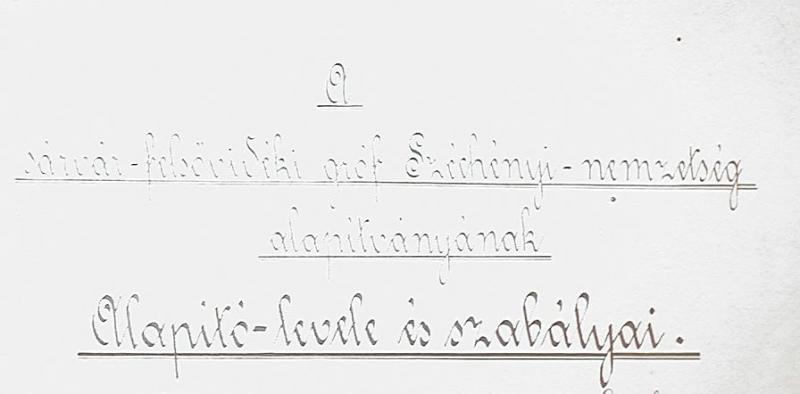 A
sárvár-felsővidéki gróf Széchényi-nemzetség
alapítványának
Alapító-levele és szabályai.